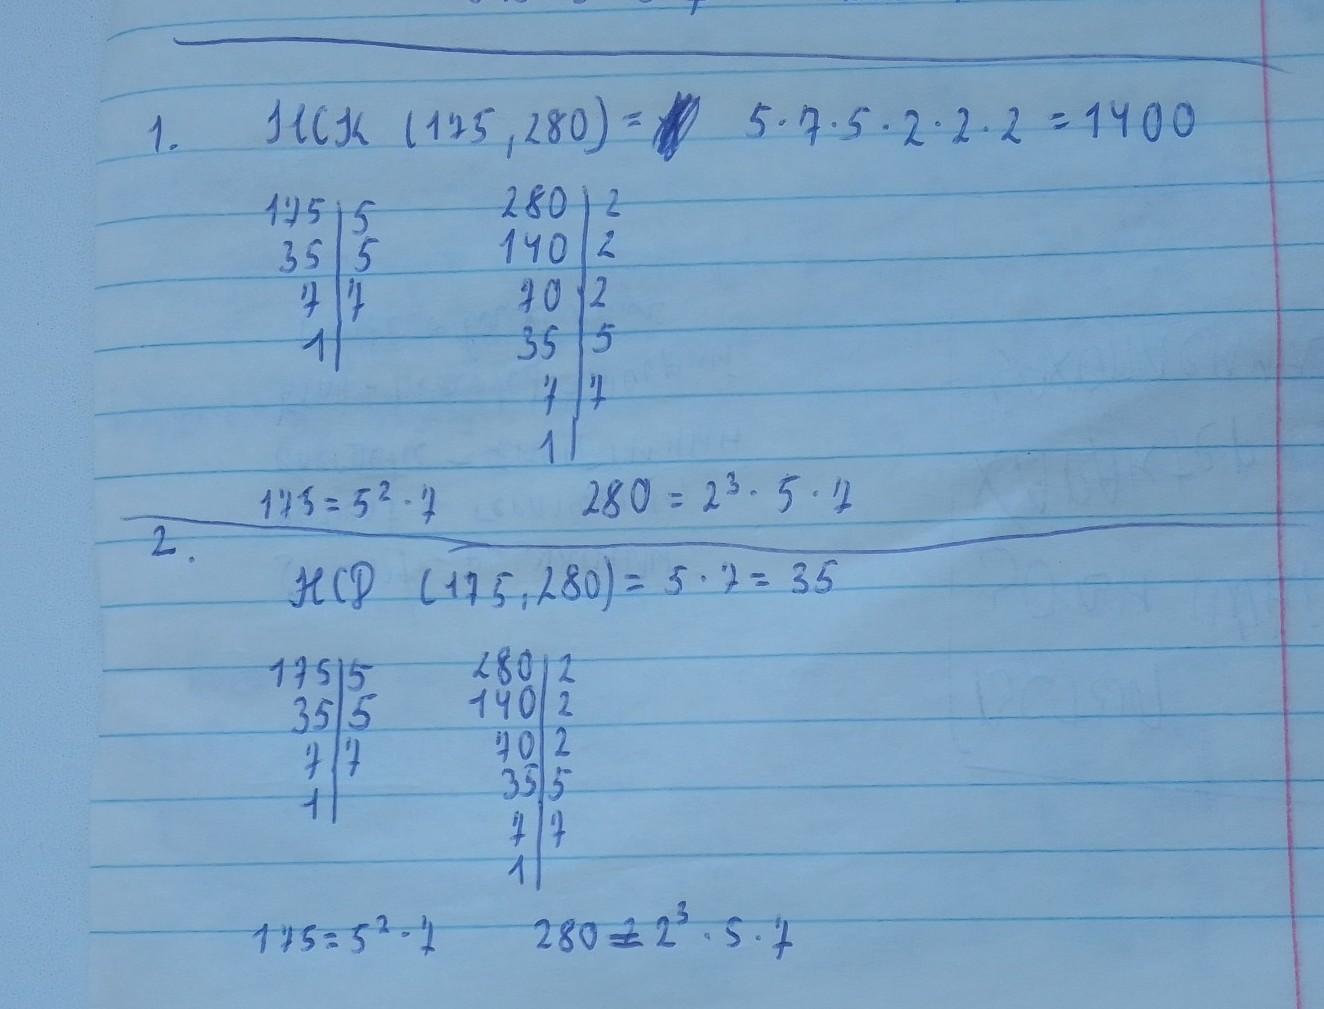 1. НСК (175,280)= 5·7·5·2·2·2 =1400
175|5 280|2
35|5 140|2
7|7 70|2
1| 35|5
7|7
1|
175=5²·7 280=2³·5·7
2.
НСД (175,280)=5·7=35
175|5 280|2
35|5 140|2
7|7 70|2
1| 35|5
7|7
1|
175=5²·7 280=2³·5·7